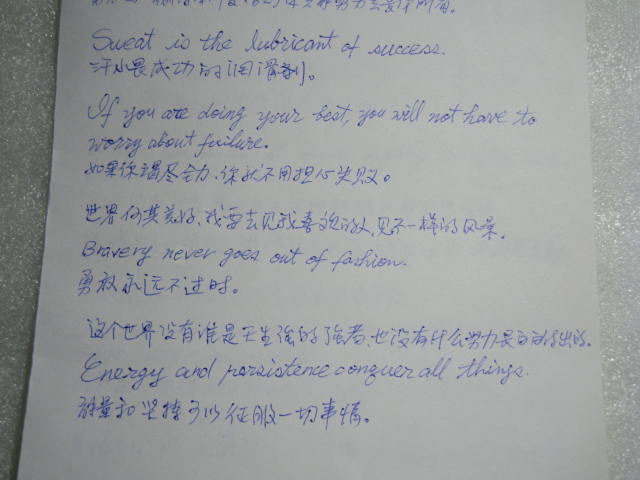 Sweat is the lubricant of success.
汗水是成功的润滑剂。
If you are doing your best, you will not have to
worry about failure.
如果你竭尽全力,你就不用担心失败。
世界何其美好,我要去见我喜欢的人,见不一样的风景。
Bravery never goes out of fashion.
勇敢永远不过时。
这个世界没有谁是天生强的强者,也没有什么努力是白白付出的。
Energy and persistence conquer all things.
能量和坚持可以征服一切事情。